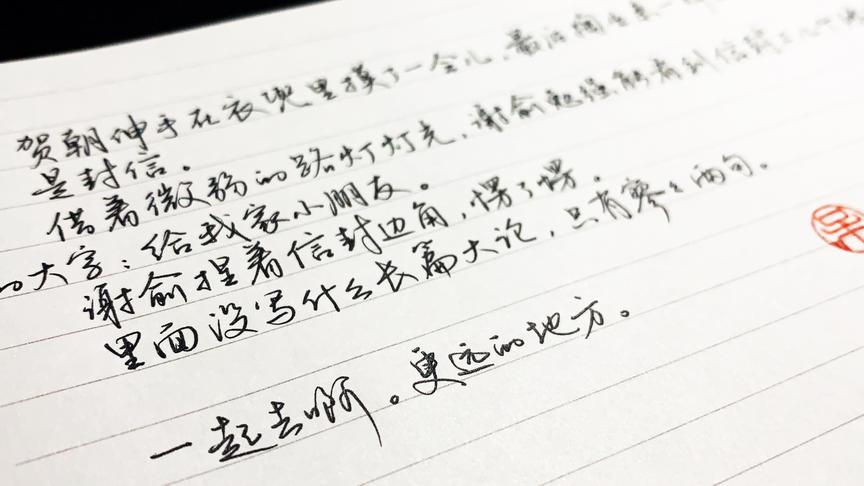 贺朝伸手在衣兜里摸了一会儿，最后掏出来一
是封信。
借着微弱的路灯灯光，谢俞勉强能看到信封上
的大字：给我家小朋友。
谢俞捏着信封边角，愣了愣。
里面没写什么长篇大论，只有寥寥两句。
一起去啊。更远的地方。